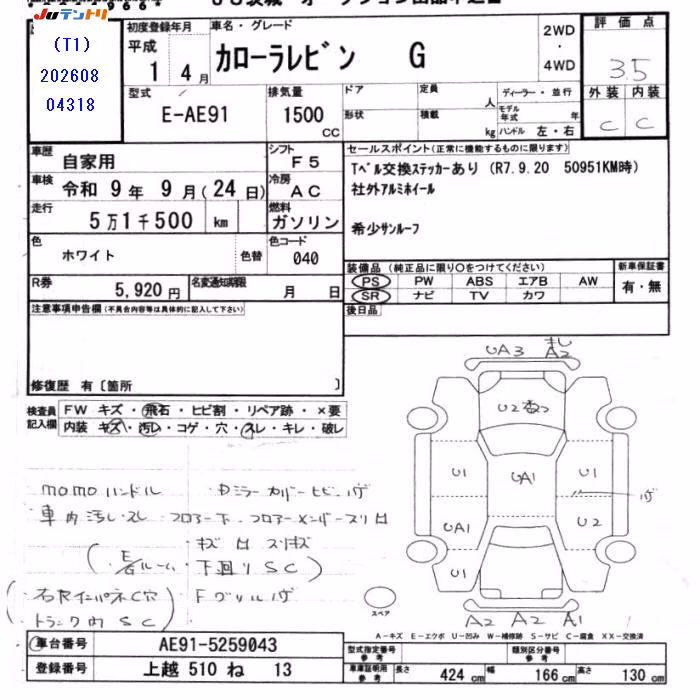 Juテントリ
(T1)
202608
04318
初度登録年月
平成
1 4 月
車名・グレード
カローラレビン G
2WD
・
4WD
評価点
3.5
外装 内装
C C
型式
E-AE91
排気量
1500
CC
ドア
形状
定員
人
積載
kg
ディーラー・並行
モデル年式 年
ハンドル 左・右
車歴
自家用
シフト
F5
車検
令和 9 年 9 月 (24 日)
冷房
AC
走行
5万1千500 km
燃料
ガソリン
色
ホワイト
色替
色コード
040
R券
5,920 円
名変通知期限
月 日
セールスポイント(正常に機能するものに限ります)
Tベル交換ステッカーあり (R7.9.20 50951KM時)
社外アルミホイール
希少サンルーフ
装備品(純正品に限り〇をつけてください)
PS PW ABS エアB AW
SR ナビ TV カワ
新車保証書
有・無
後日品
注意事項申告欄(不具合内容等は具体的に記入して下さい)
修復歴 有〔箇所 〕
検査員
記入欄
FW キズ・飛石・ヒビ割・リペア跡・×要
内装 キズ・汚レ・コゲ・穴・スレ・キレ・破レ
momoハンドル
車内汚レ・スレ
下回りSC)
トランク内SC
UA3 A2
U2
U1 UA1 U1
UA1 U2
U1
A2 A2 A1
スペア
A-キズ E-エクボ U-凹み W-補修跡 S-サビ C-腐食 XX-交換済
車台番号
AE91-5259043
登録番号
上越 510 ね 13
型式指定番号
参考
類別区分番号
参考
車庫証明用
参考
長さ
424 cm
幅
166 cm
高さ
130 cm